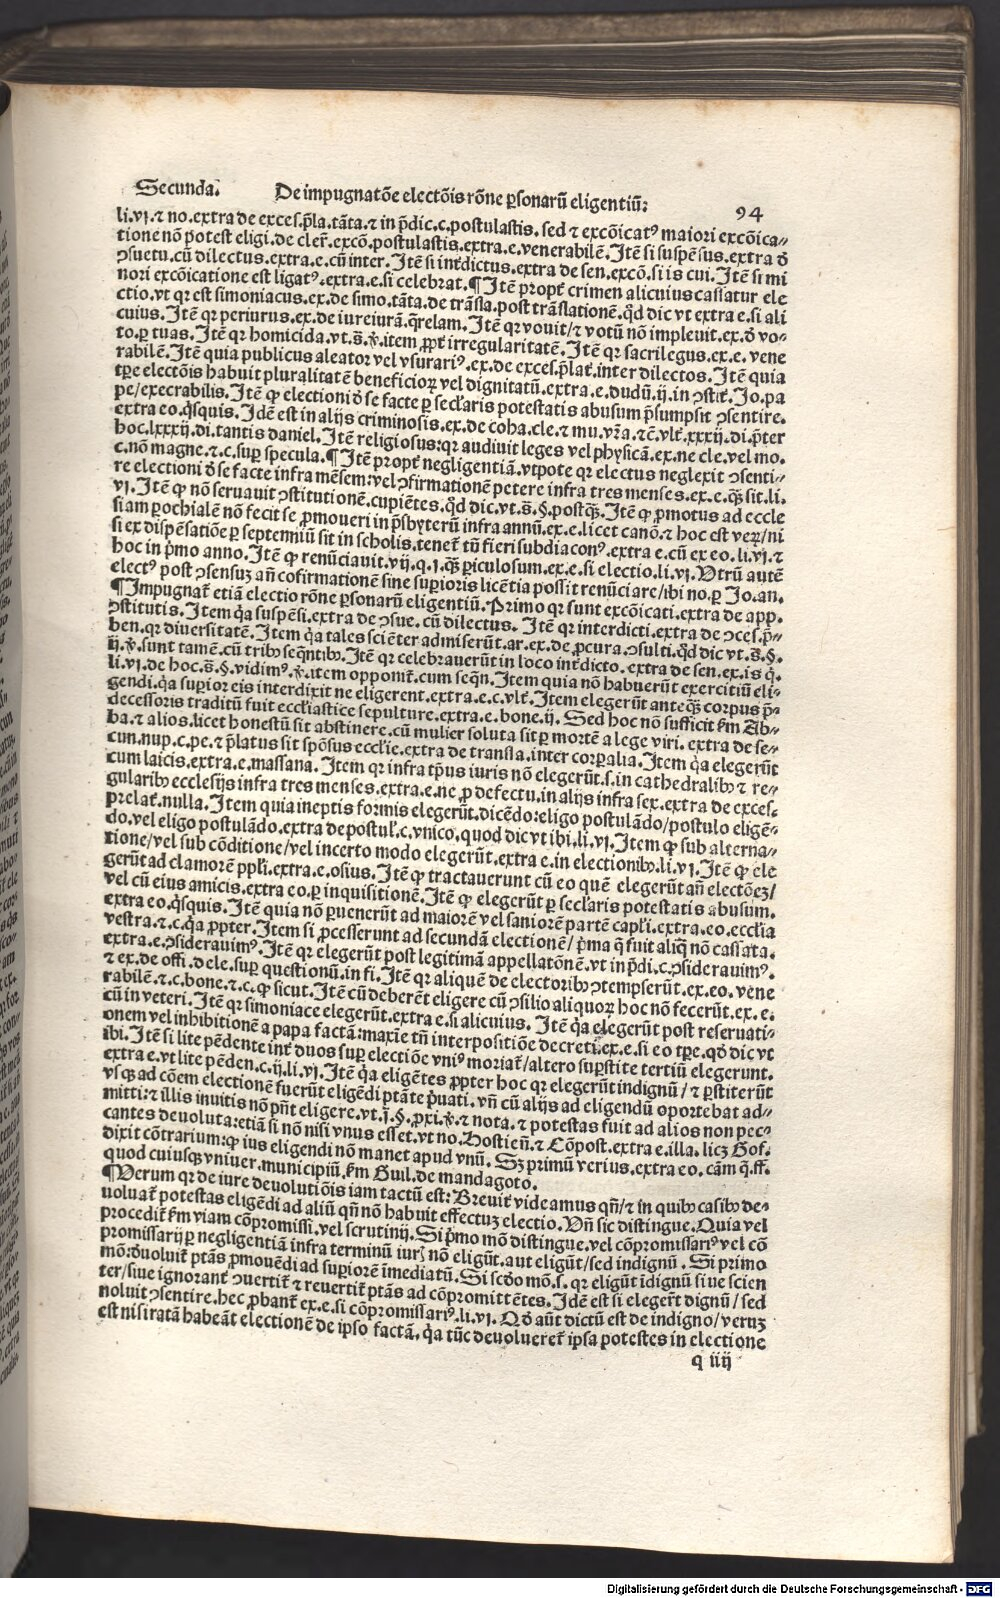 Secunda. De impugnatõe electõis rõne ꝑsonarũ eligentiũ: 94
li.vi.⁊ no.extra de exces.p̄la.tãta.⁊ in p̄dic.c.postulastis. sed ⁊ excõicatꝰ maiori excõica-
tione nõ potest eligi.de cler̃.excõ.postulastis.extra.e.venerabilẽ.Itẽ si suspẽsus.extra ð
ↄsuetu.cũ dilectus.extra.e.cũ inter.Itẽ si int̃dictus.extra de sen.excõ.si is cui.Itẽ si mi
nori excõicatione est ligatꝰ.extra.e.si celebrat.¶ Itẽ propt̃ crimen alicuius cassatur ele
ctio.vt qr est simoniacus.ex.de simo.tãta.de trãsla.post trãslationẽ.q̃d dic vt extra e.si ali
cuius.Itẽ qr periurus.ex.de iureiurã.q̃relam.Itẽ qr vouit/⁊ votũ nõ impleuit.ex.ð vo-
to.ꝑ tuas.Itẽ qr homicida.vt.s̃.ꝟ.item ꝓpt̃ irregularitatẽ.Itẽ qr sacrilegus.ex.e.vene
rabilẽ.Itẽ quia publicus aleator vel vsurariꝰ.ex.de exces.p̄lat̃.inter dilectos.Itẽ quia
tꝑe electõis habuit pluralitatẽ beneficioꝝ vel dignitatũ.extra.e.dudũ.ij.in ↄstit̃.Jo.pa
pe/execrabilis.Itẽ ꝙ electioni ð se facte ꝑ secl̃aris potestatis abusum p̄sumpsit ↄsentire.
extra eo.q̃squis.Idẽ est in alijs criminosis.ex.de coha.cle.⁊ mu.vr̃a.⁊c̃.vlt̃.xxxij.di.p̃ter
hoc.lxxxij.di.tantis daniel.Itẽ religiosus:qr audiuit leges vel physicã.ex.ne cle.vel mo.
c.nõ magne.⁊.c.suꝑ specula.¶ Itẽ propt̃ negligentiã.vtpote qr electus neglexit ↄsenti-
re electioni ð se facte infra mẽsem:vel ↄfirmationẽ petere infra tres menses.ex.e.q̃ꝫ sit.li.
vi.Itẽ ꝙ nõ seruauit ↄstitutionẽ.cupiẽtes.q̃d dic.vt.s̃.§.postq̃ꝫ.Itẽ ꝙ ꝓmotus ad eccle
siam ꝑochialẽ nõ fecit se ꝓmoueri in p̄sbyterũ infra annũ.ex.e.licet canõ.⁊ hoc est veꝝ/ni
si ex dispẽsatiõe ꝑ septenniũ sit in scholis.tenet̃ tñ fieri subdiaconꝰ.extra e.cũ ex eo.li.vi.⁊
hoc in p̃mo anno.Itẽ ꝙ renũciauit.vij.q.i.q̃ꝫ ꝑiculosum.ex.e.si electio.li.vi.Vtrũ autẽ
electꝰ post ↄsensuꝫ añ cofirmationẽ sine suꝑioris licẽtia possit renũciare/ibi no.ꝑ Jo.an.
¶ Impugnat̃ etiã electio rõne ꝑsonarũ eligentiũ. Primo qr sunt excõicati.extra de app.
ↄstitutis. Item q̃a suspẽsi.extra de ↄsue. cũ dilectus. Itẽ qr interdicti.extra de ↄces.p̄-
ben.qr diuersitatẽ.Item q̃a tales sciẽter admiserũt.ar.ex.de ꝓcura.ↄsulti.q̃d dic vt.s̃.§.
ij.ꝟ.sunt tamẽ.cũ tribꝰ seq̃ntibꝰ.Itẽ qr celebrauerũt in loco int̃dicto.extra de sen.ex.is q̃.
li.vi.de hoc.s̃.§.vidimꝰ.ꝟ.item opponit̃.cum seq̃n.Item quia nõ habuerũt exercitiũ eli-
gendi.q̃a suꝑior eis interdixit ne eligerent.extra.e.c.vlt̃.Item elegerũt anteq̃ꝫ corpus p̄-
decessoris traditũ fuit eccl̃iastice sepulture.extra.e.bone.ij. Sed hoc nõ sufficit fm̃ Ab-
ba.⁊ alios.licet honestũ sit abstinere.cũ mulier soluta sit ꝑ mortẽ a lege viri. extra de se-
cun.nup.c.pe.⁊ p̄latus sit spõsus eccl̃ie.extra de transla.inter corꝑalia.Item q̃a elegerũt
cum laicis.extra.e.massana. Item qr infra tp̃us iuris nõ elegerũt.s.in cathedralibꝰ ⁊ re-
gularibꝰ ecclesijs infra tres menses.extra.e.ne ꝓ defectu.in alijs infra sex.extra de exces.
prelat̃.nulla.Item quia ineptis formis elegerũt.dicẽdo:eligo postulãdo/postulo eligẽ-
do.vel eligo postulãdo.extra de postul̃.c.vnico.quod dic vt ibi.li.vi.Item ꝙ sub alterna-
tione/vel sub cõditione/vel incerto modo elegerũt.extra e.in electionibꝰ.li.vi.Itẽ ꝙ ele
gerũt ad clamorẽ ppl̃i.extra.e.osius.Itẽ ꝙ tractauerunt cũ eo quẽ elegerũt añ electõeꝫ/
vel cũ eius amicis.extra eo.ꝑ inquisitionẽ.Itẽ ꝙ elegerũt ꝑ secl̃aris potestatis abusum.
extra eo.q̃squis.Itẽ quia nõ ꝑuenerũt ad maiorẽ vel saniorẽ partẽ capl̃i.extra.eo.eccl̃ia
vestra.⁊.c.q̃a ꝓpter.Item si ꝓcesserunt ad secundã electionẽ/p̃ma q̃ fuit aliq̃ nõ cassata.
extra.e.ↄsiderauimꝰ.Itẽ qr elegerũt post legitimã appellatõnẽ.vt in p̄di.c.ↄsiderauimꝰ.
⁊ ex.de offi.dele.suꝑ questionũ.in fi.Itẽ qr aliquẽ de electoribꝰ ↄtempserũt.ex.eo.vene
rabilẽ.⁊.c.bone.⁊.c.ꝙ sicut.Itẽ cũ deberẽt eligere cũ ↄsilio aliquoꝝ hoc nõ fecerũt.ex.e.
cũ in veteri.Itẽ qr simoniace elegerũt.extra e.si alicuius. Itẽ q̃a elegerũt post reseruati-
onem vel inhibitionẽ a papa factã:maxĩe tñ interpositiõe decreti.ex.e.si eo tꝑe.q̃d dic vt
ibi.Itẽ si lite pẽdente int̃ duos suꝑ electiõe vniꝰ moriat̃/altero suꝑstite tertiũ elegerunt.
extra e.vt lite pẽden.c.ij.li.vi.Itẽ q̃a eligẽtes ꝓpter hoc qr elegerũt indignũ/⁊ ꝑstiterũt
vsqꝫ ad cõem electionẽ fuerũt eligẽdi ptãte p̃uati.vñ cũ alijs ad eligendũ oportebat ad-
mitti:⁊ illis inuitis nõ pñt eligere.vt.ĩ.§.ꝓxi.ꝟ.⁊ nota.⁊ potestas fuit ad alios non pec-
cantes deuoluta:etiã si nõ nisi vnus esset.vt no.Hostieñ.⁊ Cõpost.extra e.illa.licꝫ Gof.
dixit cõtrarium:ꝙ ius eligendi nõ manet apud vnũ. Sꝫ primũ verius.extra eo.cãm q̃.ff.
quod cuiusqꝫ vniuer.municipiũ.fm̃ Guil.de mandagoto.
¶ Verum qr de iure deuolutiõis iam tactũ est: Breuit̃ videamus qñ/⁊ in quibꝰ casibꝰ de-
uoluat̃ potestas eligẽdi ad aliũ qñ nõ habuit effectuꝫ electio.Vñ sic distingue.Quia vel
procedit̃ fm̃ viam cõpromissi.vel scrutinij. Si p̃mo mõ distingue.vel cõpromissariꝰ vel cõ
promissarij ꝑ negligentiã infra terminũ iurꝭ nõ eligũt.aut eligũt/sed indignũ. Si primo
mõ:ðuoluit̃ ptãs ꝓmouẽdi ad suꝑiorẽ ĩmediatũ. Si scðo mõ.s. qr eligũt ĩdignũ siue scien
ter/siue ignorant̃ ↄuertit̃ ⁊ reuertit̃ ptãs ad cõpromittẽtes.Idẽ est si elegerit dignũ/sed
noluit ↄsentire.hec ꝓbant̃ ex.e.si cõpromissariꝰ.li.vi. Qð aũt dictũ est de indigno/veruꝫ
est nisi ratã habeãt electionẽ de ipso factã.q̃a tũc deuolueret̃ ipsa potestes in electione
q iiij
Digitalisierung gefördert durch die Deutsche Forschungsgemeinschaft - DFG